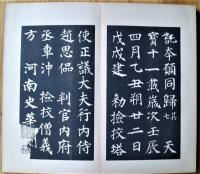 託本願同歸其七 天
寶十一載歲次壬辰
四月乙丑朔廿二日
戊戌建 勅撿挍塔
使正議大夫行內侍
趙思侃 判官內府
丞車沖 撿挍僧義
方 河南史華